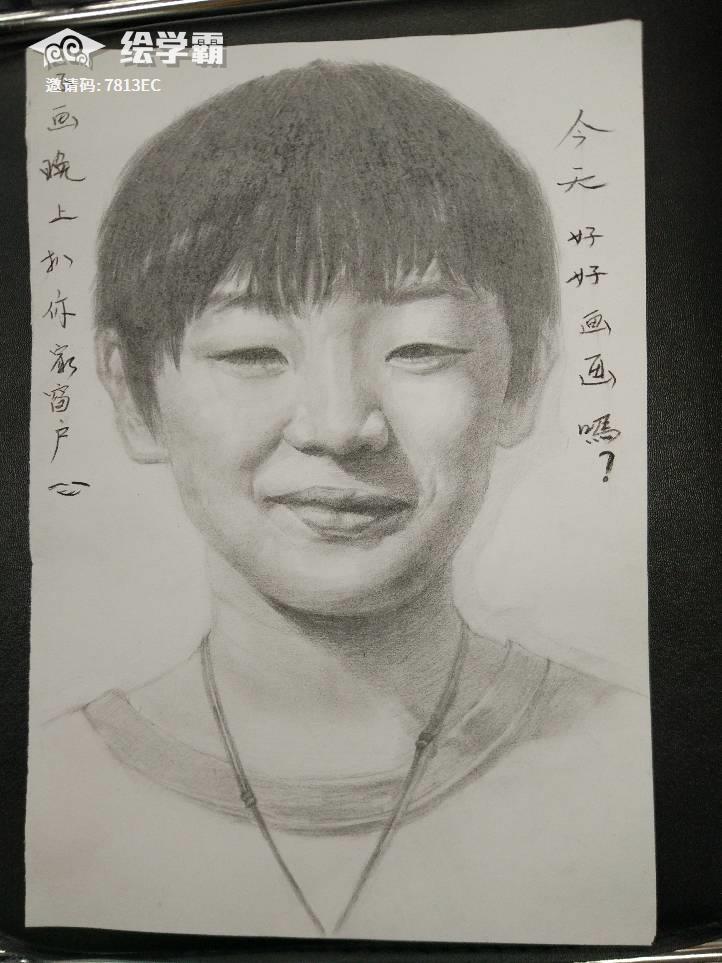 绘学霸
邀请码: 7813EC
今天好好画画嗎?
画晚上扒你家窗户